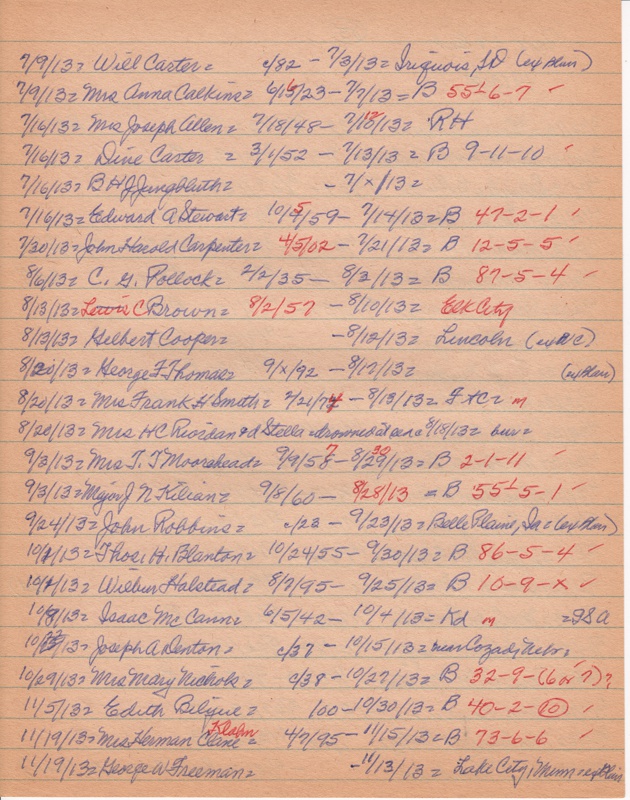 7/9/13= Will Carter= c/82 - 7/3/13= Iriquois, SD (ex Blair)
7/9/13= Mrs Anna Calkins= 6/15/23 - 7/7/13= B 55½-6-7 ✓
7/16/13= Mrs Joseph Allen= 7/18/48 - 7/12/13= RH
7/16/13= Dine Carter = 3/1/52 - 7/13/13= B 9-11-10 ✓
7/16/13= B H J Jungbluth= - 7/x/13=
7/16/13= Edward A Stewart= 10/5/59 - 7/14/13= B 47-2-1 ✓
7/30/13= John Harold Carpenter= 4/5/02 - 7/21/13= B 12-5-5 ✓
8/6/13= C. G. Pollock= 2/2/35 - 8/2/13= B 87-5-4 ✓
8/13/13= Lewis C Brown= 8/2/57 - 8/10/13= Elk City
8/13/13= Gilbert Cooper= - 8/12/13= Lincoln (ex W/C)
8/20/13= George F Thomas= 9/x/92 - 8/17/13= (ex Blair)
8/20/13= Mrs Frank H Smith= 2/21/74 - 8/13/13= F+C= m
8/20/13= Mrs HC Riordan + d Stella = drowned at sea 8/18/13= bur=
9/3/13= Mrs T. T Moorehead= 9/9/57 - 8/30/13= B 2-1-11 ✓
9/3/13= Major J N Kilian= 9/8/60 - 8/28/13 = B 55½-5-1 ✓
9/24/13= John Robbins= c/23 - 9/23/13= Belle Plaine, Ia= (ex Blair)
10/1/13= Thos. H. Blanton= 10/24/55 - 9/30/13= B 86-5-4 ✓
10/1/13= Wilbur Halstead= 8/7/95 - 9/25/13= B 10-9-x ✓
10/8/13= Isaac McCann= 6/5/42 - 10/4/13= Kd m =98a
10/ /13= Joseph A Denton= c/37 - 10/15/13= near Cozad, Nebr.
10/29/13= Mrs Mary Nichols= c/38 - 10/27/13= B 32-9-(6 or 7)?
11/5/13= Edith Bilyue= 100 - 10/30/13= B 40-2-10 ✓
11/19/13= Mrs Herman Klahn= 4/7/95 - 11/15/13= B 73-6-6 ✓
11/19/13= George W Freeman= - 11/13/13= Lake City, Minn= ex Blair